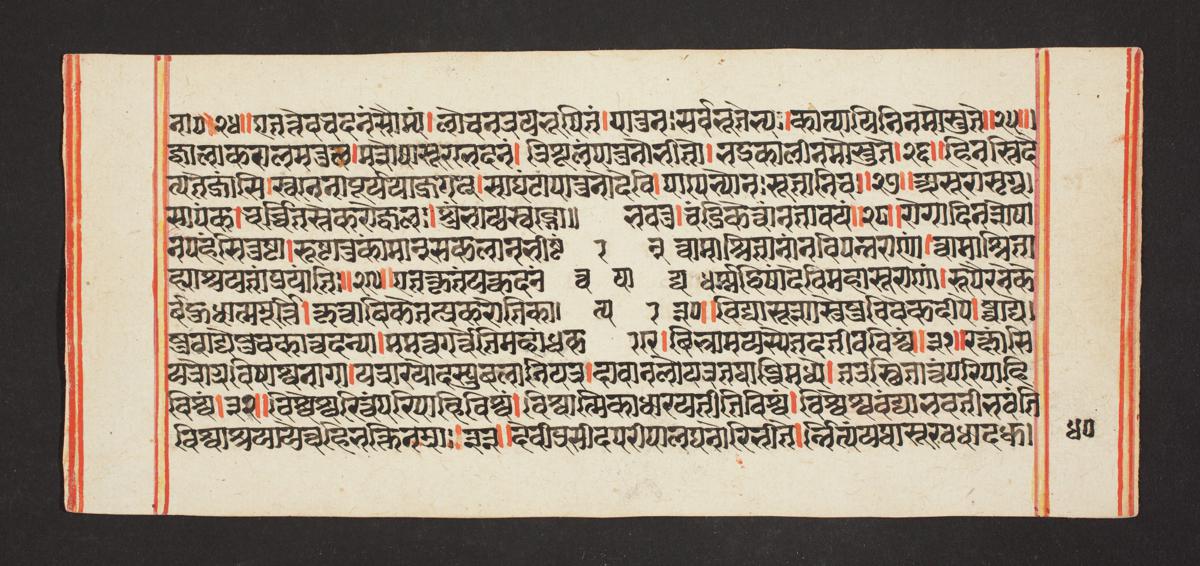 नाय।२४॥एतत्तेवदनंसौम्यं।लोचनत्रयभूषितं।पातुनः सर्वभूतेभ्यः।कात्यायिनिनमोस्तुते॥२५॥
ज्वालाकरालमत्युग्र।मशेषासुरसूदनं।त्रिशूलंपातुनोभीता।भद्रकालीनमोस्तुते।२६॥हिनस्तिदै
त्यतेजांसि।स्वनेनापूर्ययाजगत्।साघंटापातुनोदेवि।पापेभ्योनः सुतानिव॥२७॥असुरासृग्व
सापंक।चर्चितस्तेकरोज्वलः।शुभायखड्गो॥ भवतु।चंडिकेत्वांनतावयं॥२८॥रोगादिनशेषा
नपहंसितुष्टा।रुष्टातुकामान्सकलानभीष्टां र न् त्वामाश्रितानांनविपन्नराणां।त्वामाश्रिता
ह्याश्रयतांप्रयांति॥२९॥एतत्कृतंयत्कदनं त्व या द्य धर्मद्विषांदेविमहासुराणां।रूपैरनेकै
र्बहुधात्ममूर्तिं।कृत्वांबिकेतत्प्रकरोतिका। न्य ३०॥विद्यासुशास्त्रेषुविवेकदीपे।ष्वाद्ये
षुवाक्येषुचकात्वदन्या।ममत्वगर्तेतिमहांधका रे।विभ्रामयत्येतदतीवविश्वं॥३१॥रक्षांसि
यत्रोग्रविषाश्चनागा।यत्रारयोदस्युबलानियत्र।दावानलोयत्रतथाब्धिमध्ये।तत्रस्थितात्वंपरिपासि
विश्वं।३२॥विश्वेश्वरित्वंपरिपासिविश्वं।विश्वात्मिकाधारयसीतिविश्वं।विश्वेशवंद्याभवतीभवंति
विश्वाश्रयायेत्वयिभक्तिनम्राः।३३॥देवीप्रसीदपरिपालयनोरिभीते।र्नित्यंयथासुरवधादधु
४०